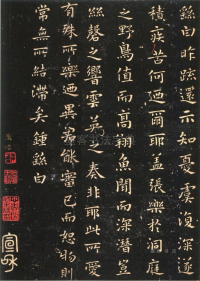 繇白昨疏還示知憂虞復深遂
積疾苦何迺爾耶蓋張樂於洞庭
之野鳥值而高翔魚聞而深潛豈
絲磬之響雲英之奏非耶此所愛
有殊所樂迺異君能審己而恕物則
常無所結滯矣鍾繇白